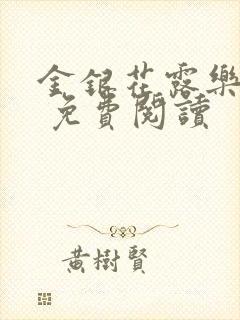 金銀花露樂
免費閱讀
黃樹賢